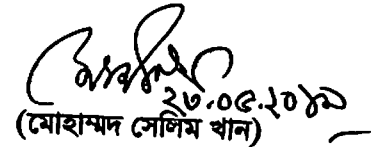 ২৩.০৫.২০১৯
(মোহাম্মদ সেলিম খান)